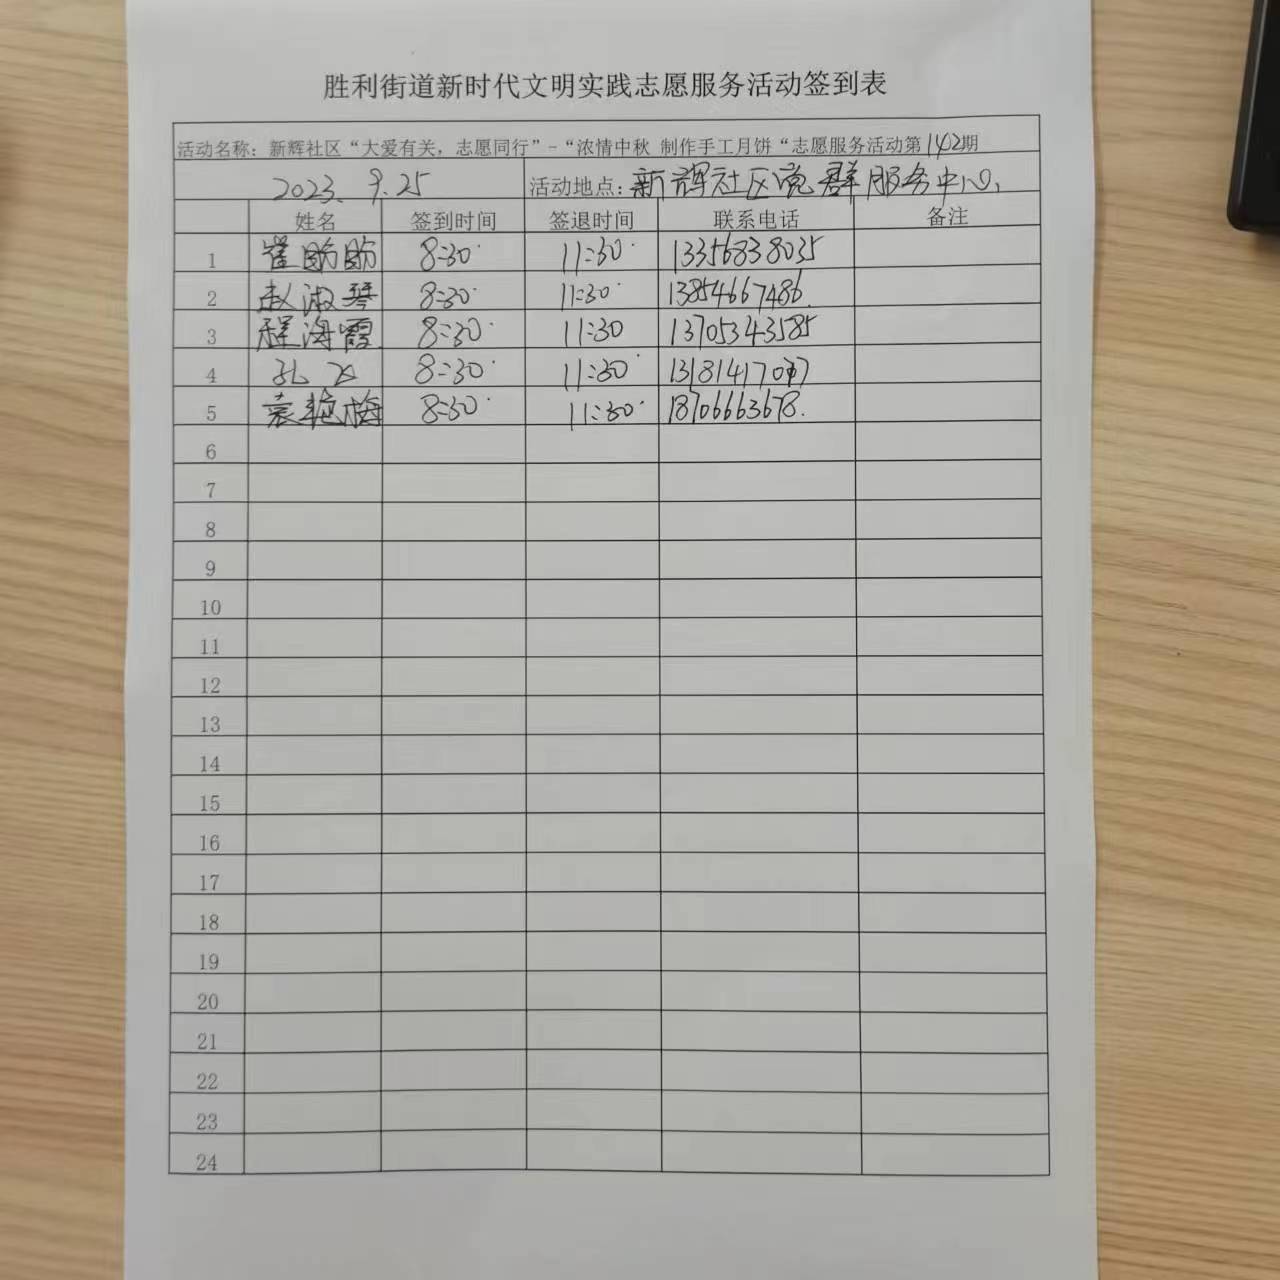 胜利街道新时代文明实践志愿服务活动签到表
活动名称：新辉社区“大爱有关，志愿同行”-“浓情中秋 制作手工月饼“志愿服务活动第142期
2023.9.25 活动地点：新辉社区党群服务中心
姓名 签到时间 签退时间 联系电话 备注
1 崔 8:30 11:30 13356838035
2 赵淑琴 8:30 11:30 13854667486
3 程海霞 8:30 11:30 13705343585
4 孔 8:30 11:30
5 袁艳梅 8:30 11:30 18706663678
6
7
8
9
10
11
12
13
14
15
16
17
18
19
20
21
22
23
24